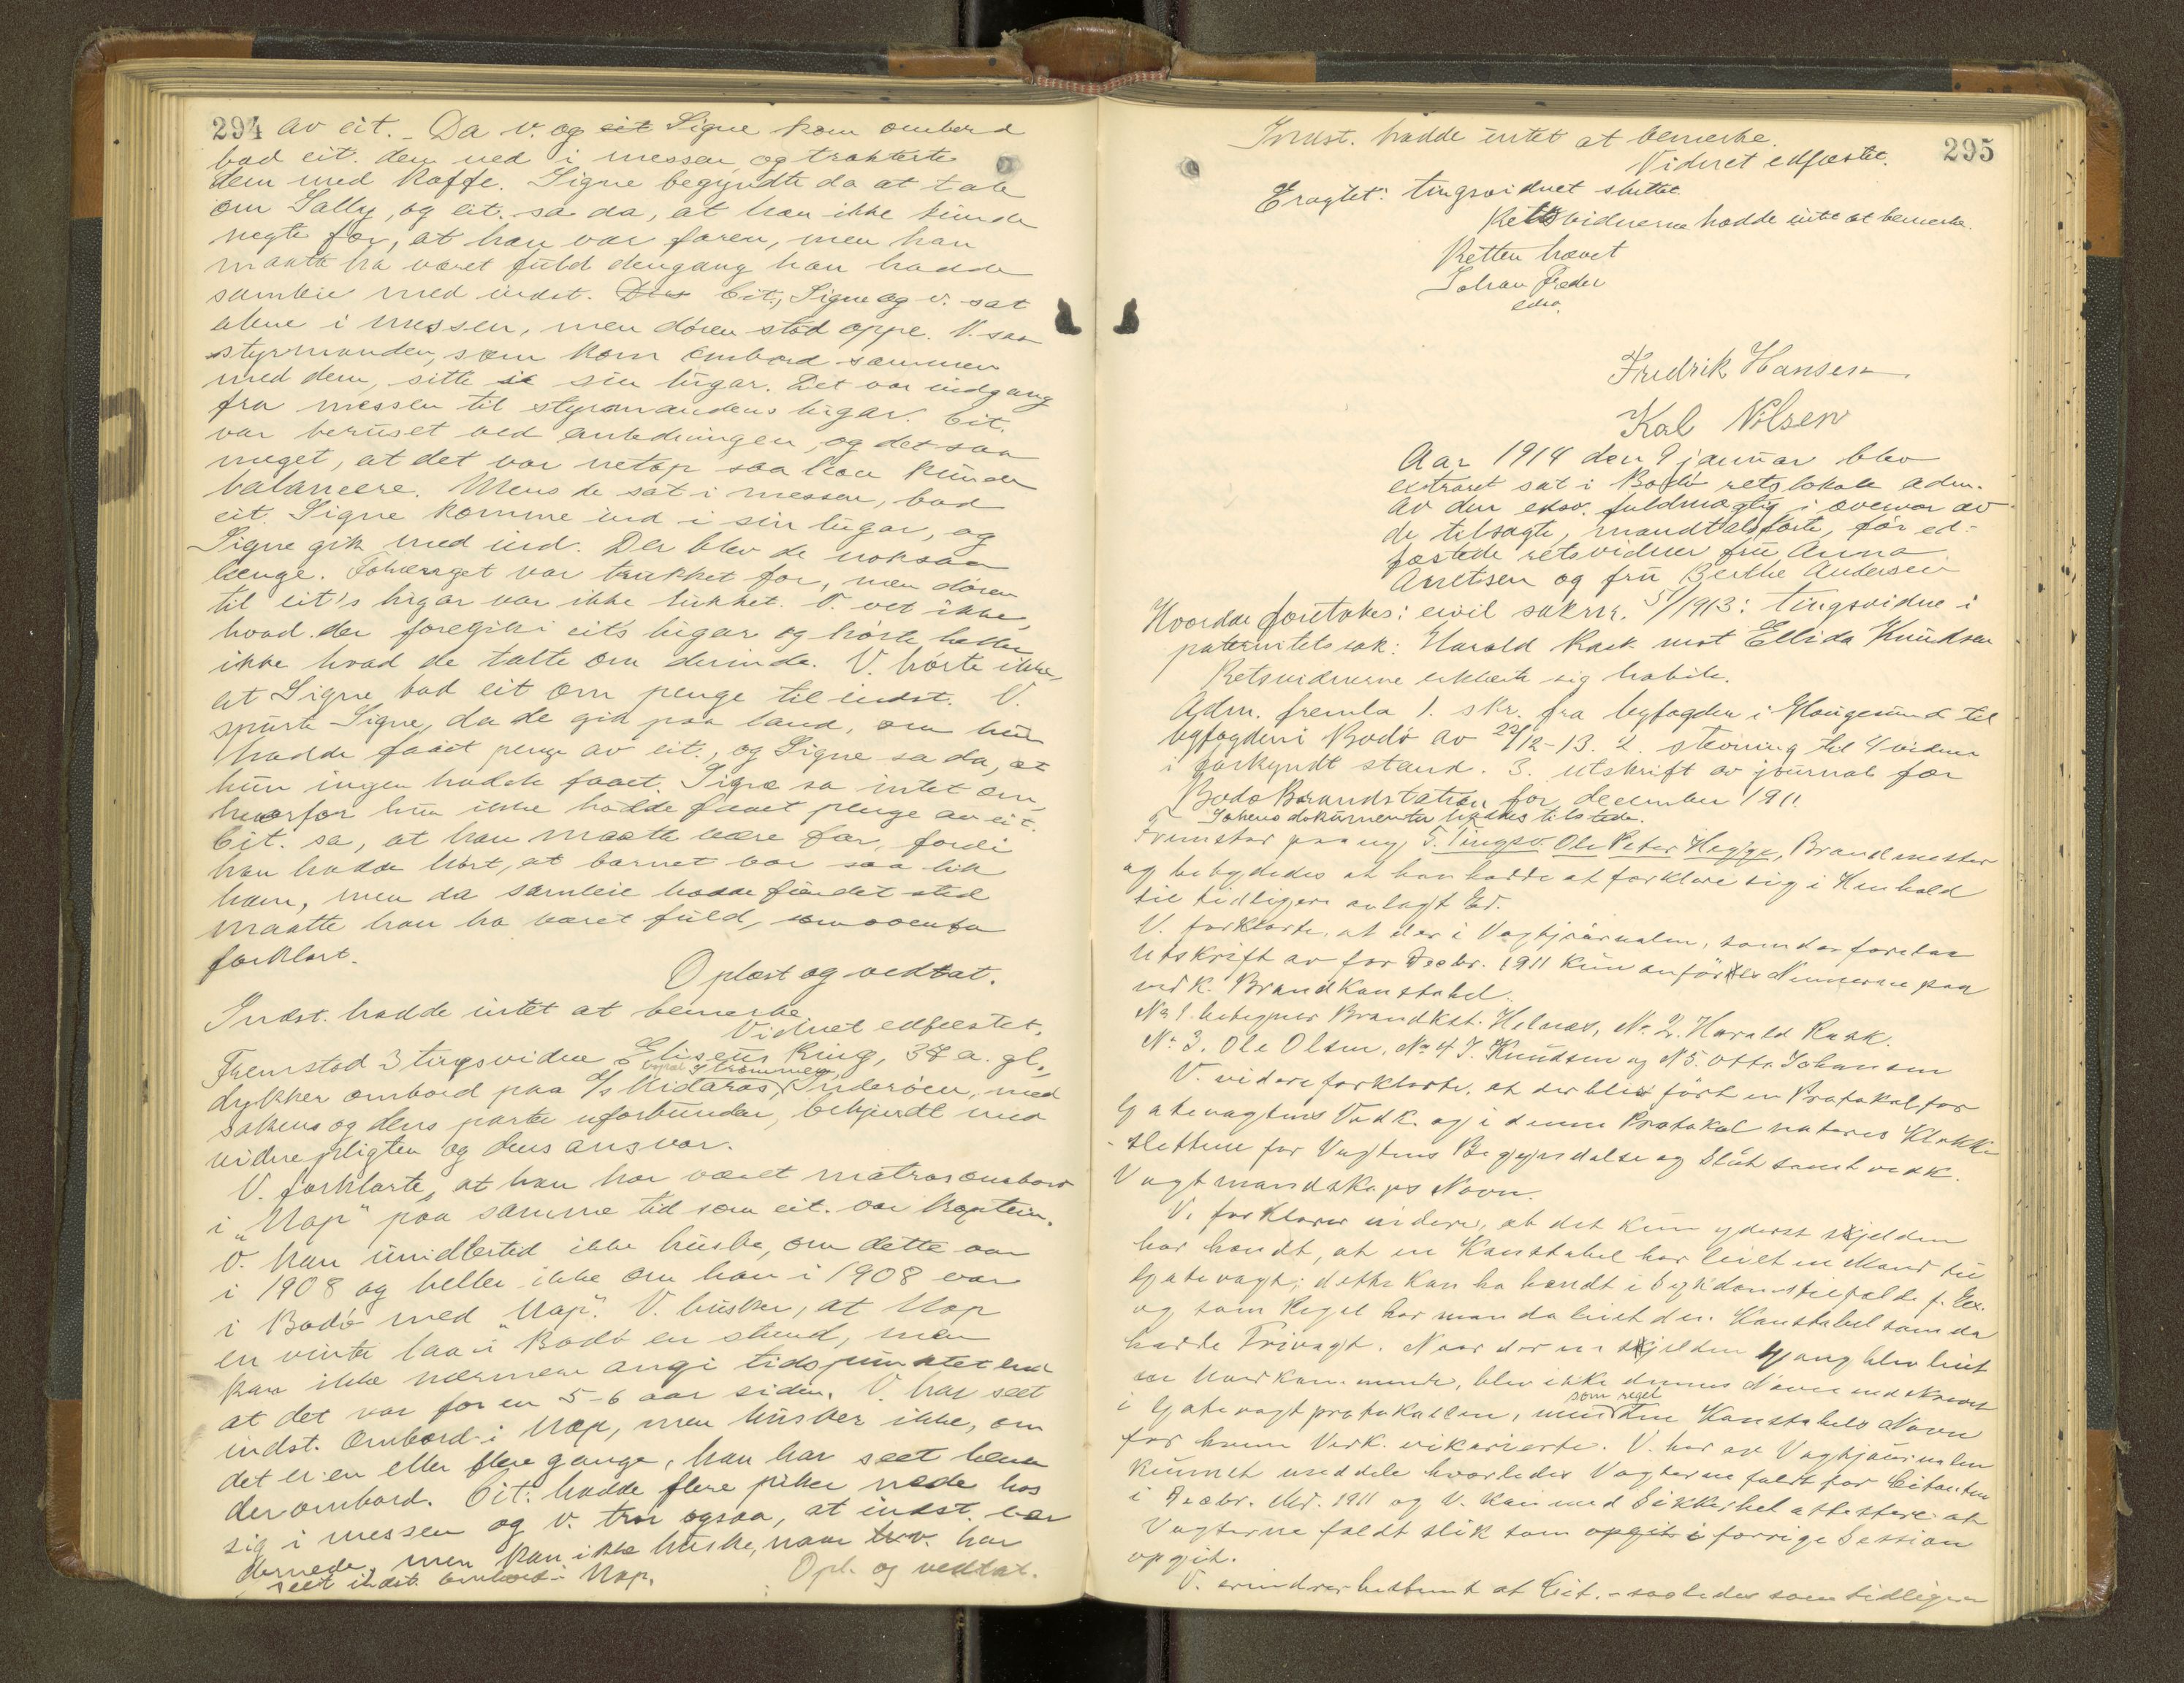 294 av cit. - Da v. og cit Signe kom ombord
bad cit. dem ned i messen og trakterte
dem med kaffe. Signe begyndte da at tale
om Sally, og cit. sa da, at han ikke kunde
negte for, at han var faren, men han
maatte ha været fuld dengang han hadde
samleie med indst. Cit., Signe og v. sat
alene i messen, men døren stod oppe. V. saa
styrmanden, som kom ombord sammen
med dem, sitte i sin lugar. Det var indgang
fra messen til styrmandens lugar. Cit.
var beruset ved anledningen, og det saa
meget, at det var netop saa han kunde
balancere. Mens de sat i messen, bad
cit. Signe komme ind i sin lugar, og
Signe gik med ind. Der blev de noksaa
længe. Forhænget var trukket for, men døren
til cit's lugar var ikke lukket. V. vet ikke,
hvad der foregik i cit's lugar og hørte heller
ikke hvad de talte om derinde. V. hørte ikke,
at Signe bad cit om penge til indst. V.
spurte Signe, da de gik paa land, om hun
hadde faaet penge av cit., og Signe sa da, at
hun ingen hadde faaet. Signe sa intet om,
hvorfor hun ikke hadde faaet penge av cit.
Cit. sa, at han maatte være far, fordi
han hadde hørt, at barnet var saa lik
ham, men da samleie hadde fundet sted
maatte han ha været fuld, som ovenfor
forklart.
Oplæst og vedtat.
Indst. hadde intet at bemerke.
Vidnet edfæstet.
Fremstod 3 tingsvidne Eliseus Ring, 38 a. gl.,
Strømmen,
dykker ombord paa S/S Nidaros, Inderøen, med
sakens og dens parter uforbunden, bekjendt med
vidnepligten og dens ansvar.
V. forklarte, at han har været matros ombord
i "Nap" paa samme tid som cit. var kaptein.
V. kan imidlertid ikke huske, om dette var
i 1908 og heller ikke om han i 1908 var
i Bodø med "Nap". V. husker, at Nap
en vinter laa i Bodø en stund, men
kan ikke nærmere angi tidspunktet end
at det var for en 5-6 aar siden. V. har seet
indst. ombord i Nap, men husker ikke, om
det er en eller flere gange, han har seet henne
der ombord. Cit. hadde flere piker nede hos
sig i messen og v. tror ogsaa, at indst. var
dernede, men kan ikke huske, naar v. har
seet indst. ombord i Nap.
Opl. og vedtat.
295
Indst. hadde intet at bemerke.
Vidnet edfæstet.
Eragtet: tingsvidnet sluttet.
Retsvidnerne hadde intet at bemerke.
Retten hævet
Johan
Fredrik Hansen
Karl Nilsen
Aar 1914 den 9 januar blev
extraret sat i Bodø retslokale adm.
av den edsv. fuldmægtig i overvær av
de tilsagte, mandtalsførte, før ed-
fæstede retsvidner fru Anna
Arntsen og fru Berthe Andersen
Hvorda foretokes: civil sak nr. 51/1913: tingsvidne i
paternitetssak: Harald Rask mot Ellida Knudsen
Retsvidnerne erklærte sig habile.
Adm. fremla 1. skr. fra byfogden i Haugesund til
byfogden i Bodø av 22/12-13. 2. stevning til 4 vidner
i forkyndt stand. 3. utskrift av journal for
Bodø Brandstation for december 1911
Sakens dokumenter haddes tilstede.
Fremstod paany 5. Tingsv. Ole Peter Hegge, Brandmester
og betydedes at han hadde at forklare sig i Henhold
til tidligere avlagt Ed.
V. forklarte, at der i Vagtjournalen, som der foretaes
Utskrift av for Decbr. 1911 kun anføres Numerne paa
vedk. Brandkonstabel.
No 1. betegner Brandkst. Helnæs, No 2. Harald Rask.
No 3. Ole Olsen, No 4 J. Knudsen og N 5. Otto Johansen
V. videre forklarte, at der blev ført en Protokol for
Gatevagtens Vedk. og i denne Protokol noteres Klokke
-slettene for Vagtens Begyndelse og Slut samt vedk.
Vagtmandskaps Navn.
V. forklarer videre, at det kun yderst sjelden
har hændt, at en Konstabel har leiet en Mand til
Gatevagt; dette kan ha hændt i Sykdomstilfælde f. Ex.
og som Regel har man da leiet den Konstabel som da
hadde Frivagt. Naar der en sjelden Gang blev leiet
en Utenkommende, blev ikke dennes Navn indskrevet
som regel
i Gatevagtprotokollen, men den Konstabels Navn
for hvem Vedk. vikarierte. V. har av Vagtjournalen
kunnet meddele hvorledes Vagterne faldt for Citanten
i Decbr. Md. 1911 og V. kan med Sikkerhet attestere at
Vagterne faldt slik som opgit i forrige Session
opgit.
V. erindrer bestemt at Cit. - saaledes som tidligere